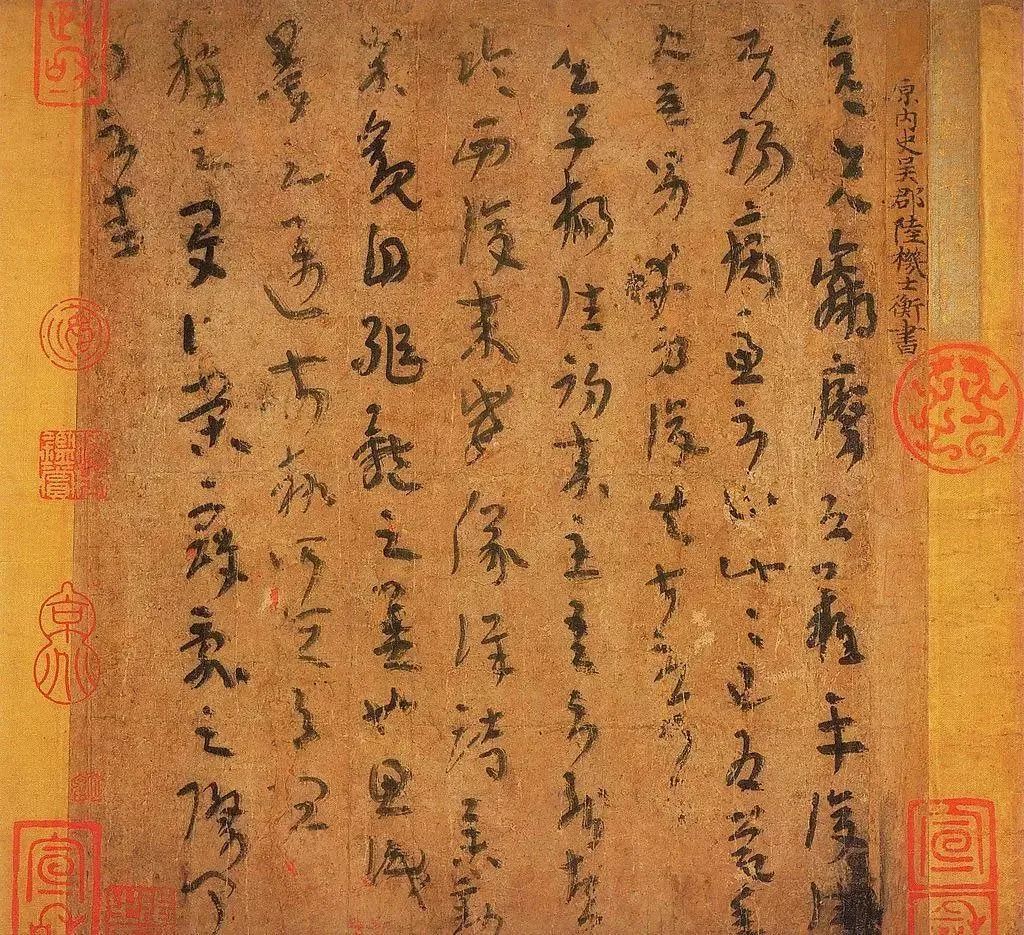 原內史吳郡陸機士衡書
彥先羸瘵恐難平復往
屬初病慮不止此此已為慶承
使唯男幸為復失前憂耳
吳子楊往初來主吾不能盡
臨西復來威儀詳跱舉動
成觀自軀體之美也思識
量之邁前勢所恒有宜
稱之夏伯榮寇亂之際聞
問不悉
政和
宣